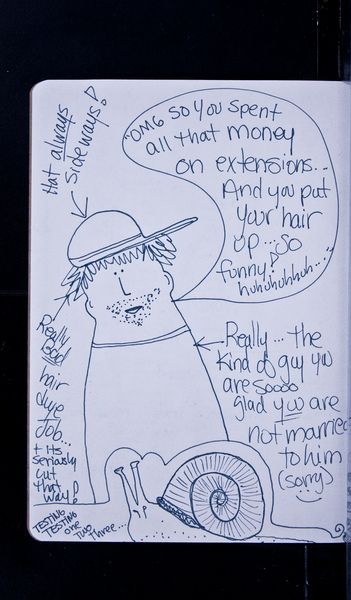 Hat always
sideways!
"OMG so you spent
all that money
on extensions...
And you put
your hair
up...so
funny!
huhuhuhhuh..."
Really
bad
hair
dye
Job...
+ its
seriously
cut
that
way!
Really... the
kind of guy you
are soooo
glad you are
not married
to him
(sorry)
TESTING
TESTING
one
Two
Three...